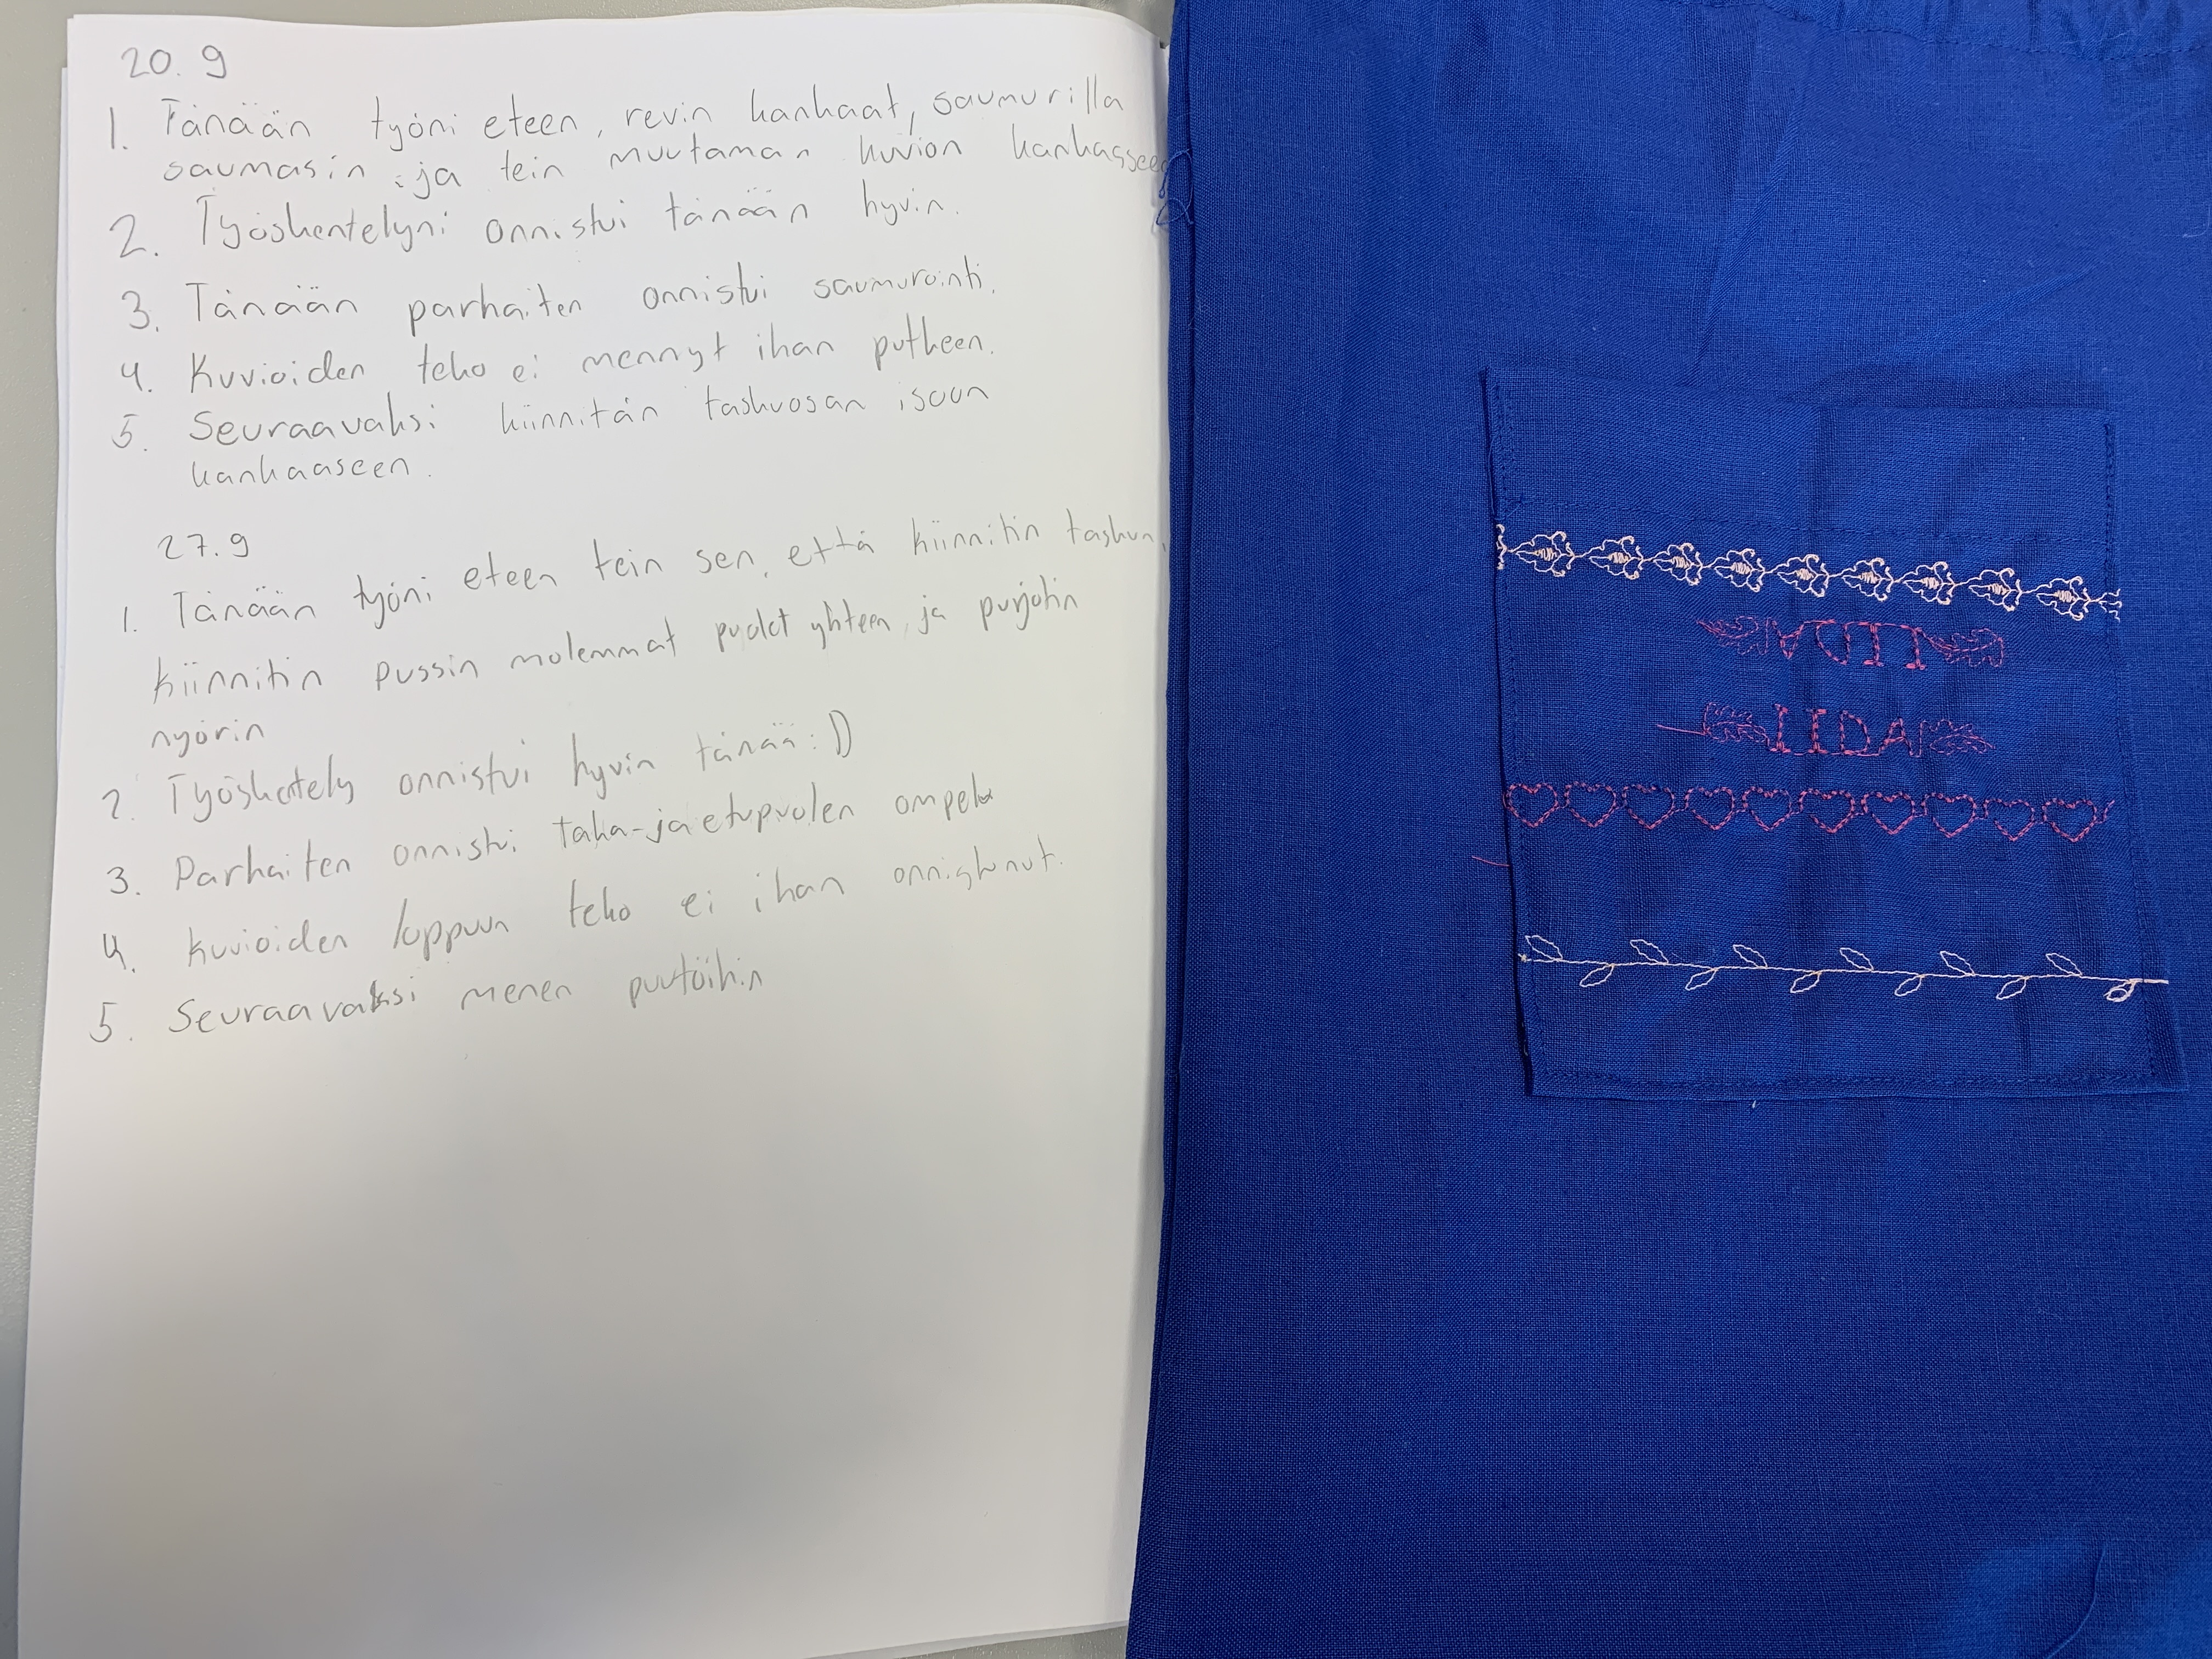 20.9
1. Tänään työni eteen, revin kankaat, saumurilla
saumasin ja tein muutaman kuvion kankasseen
2. Työskentelyni onnistui tänään hyvin.
3. Tänään parhaiten onnistui saumurointi.
4. Kuvioiden teko ei mennyt ihan putkeen.
5. Seuraavaksi kiinnitän taskuosan isoon
kankaaseen.
27.9
1. Tänään työni eteen tein sen, että kiinnitin taskun,
kiinnitin pussin molemmat puolet yhteen ja pujotin
nyörin
2. Työskentely onnistui hyvin tänää :D
3. Parhaiten onnistui taka-ja etupuolen ompelu
4. Kuvioiden loppuun teko ei ihan onnistunut.
5. Seuraavaksi menen puutöihin
IIDA
IIDA